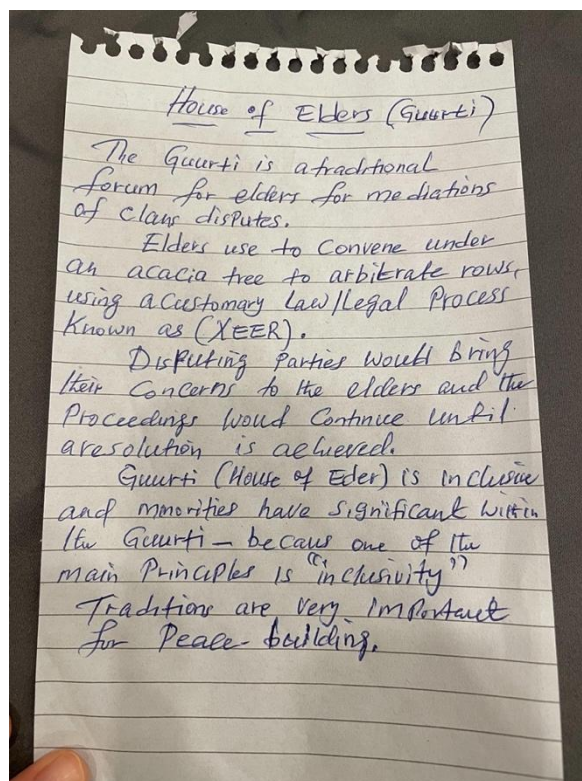 House of Elders (Guurti)
The Guurti is a traditional
forum for elders for mediations
of clans disputes.
Elders use to convene under
an acacia tree to arbitrate rows,
using a customary Law/Legal Process
Known as (XEER).
Disputing parties would bring
their concerns to the elders and the
Proceedings would continue until
a resolution is achieved.
Guurti (House of Eder) is inclusive
and minorities have significant within
the Guurti – becaus one of the
main Principles is "inclusivity"
Traditions are very important
for Peace-building.